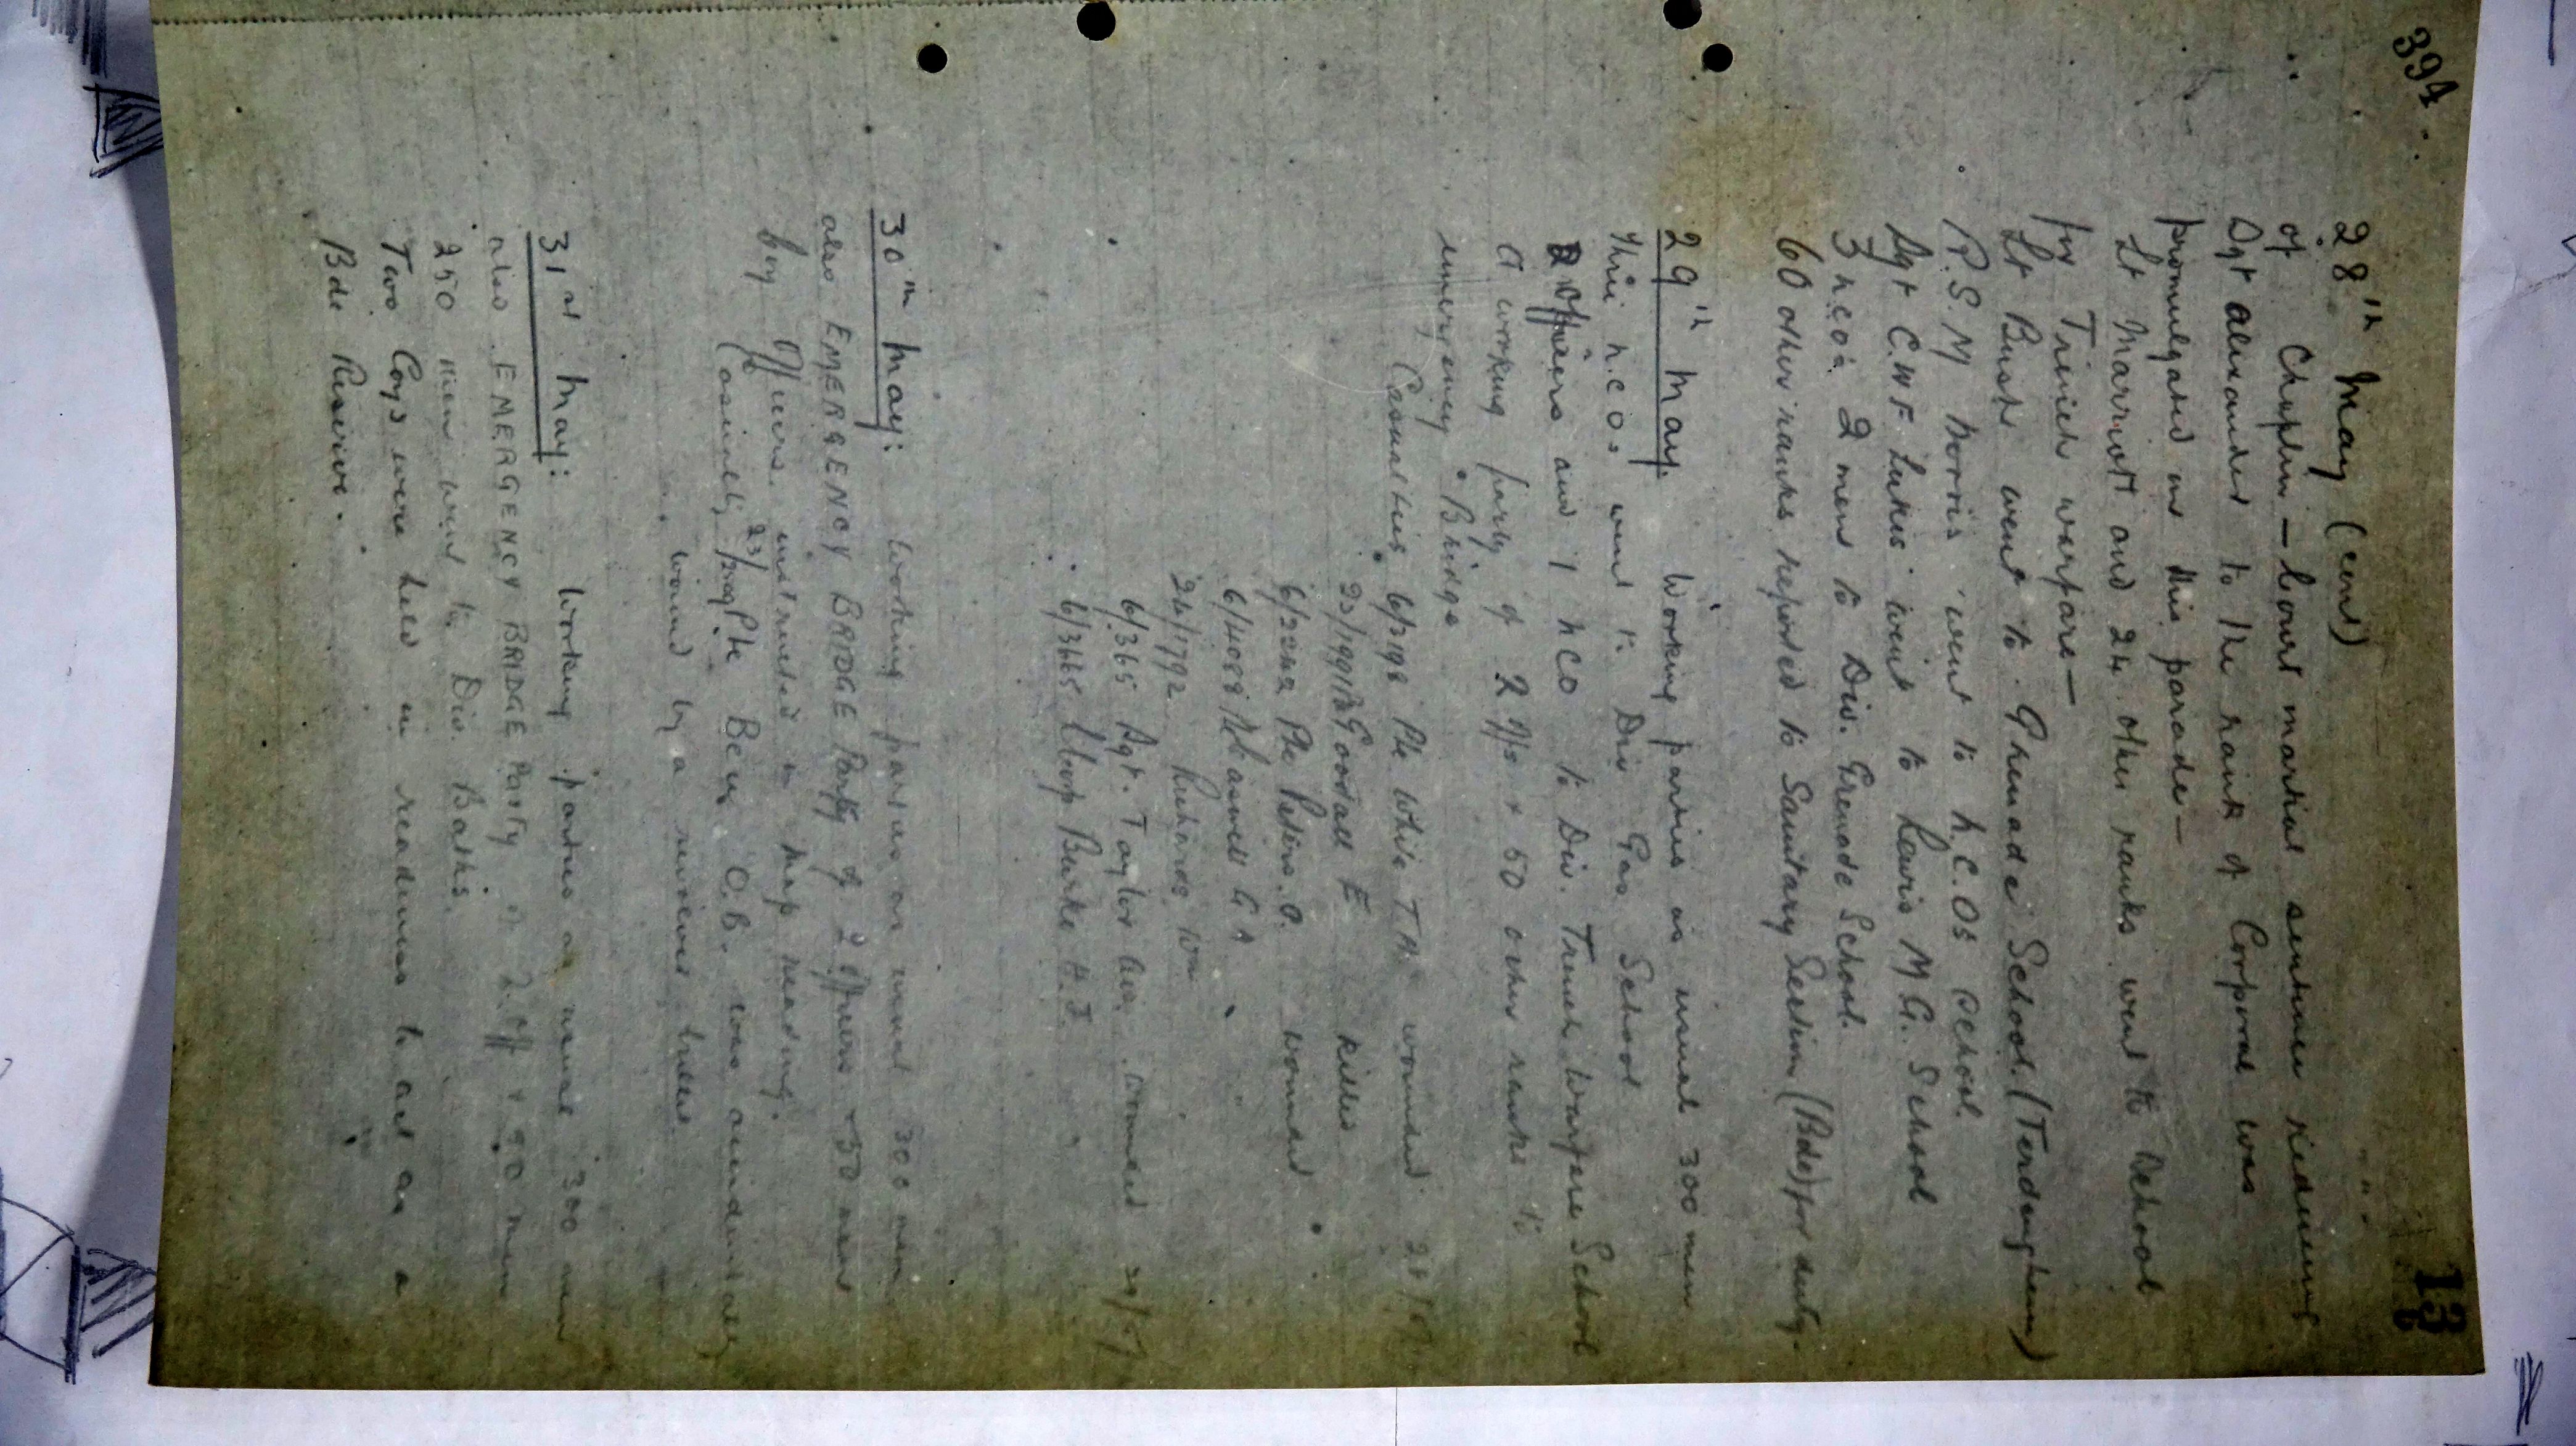 394
13
28th May (cont)
of Chaplin — Court martial sentence reducing
Sgt Alexander to the rank of Corporal was
promulgated on this parade —
Lt Marriott and 24 other ranks went to School
for Trench warfare —
Lt Bush went to Grenade School (Terdenghem)
R.S.M Norris went to N.C.Os School.
Sgt C.W.F. Lukis went to Lewis M.G. School
3 NCOs 2 men to Div. Grenade School.
60 other ranks reported to Sanitary Section (Bde) for duty.
29th May. Working parties as usual 300 men
Three N.C.Os went to Div Gas School
2 Officers and 1 NCO to Div. Trench Warfare School
a working party of 2 O/s + 50 other ranks to
emergency Bridge
Casualties 6/3198 Pte White T.H. wounded
23/1991 Goodall E killed
6/2242 Pte Peters. O. wounded
6/4088 G A
24/1792 Richards Wm
6/365 Sgt. Taylor wounded
6/3665 Burke
30th May: Working parties as usual 300 men
also EMERGENCY BRIDGE Party of 2 officers + 50 men
Coy Officers instructed in map reading.
Casualty Pte O.B. was accidentally
wound by a revolver bullet
31st May: Working parties as usual 300 men
also EMERGENCY BRIDGE Party of 2 Off + 90 men
250 men went to Div. Baths.
Two Coys were held in readiness to act as a
Bde Reserve.